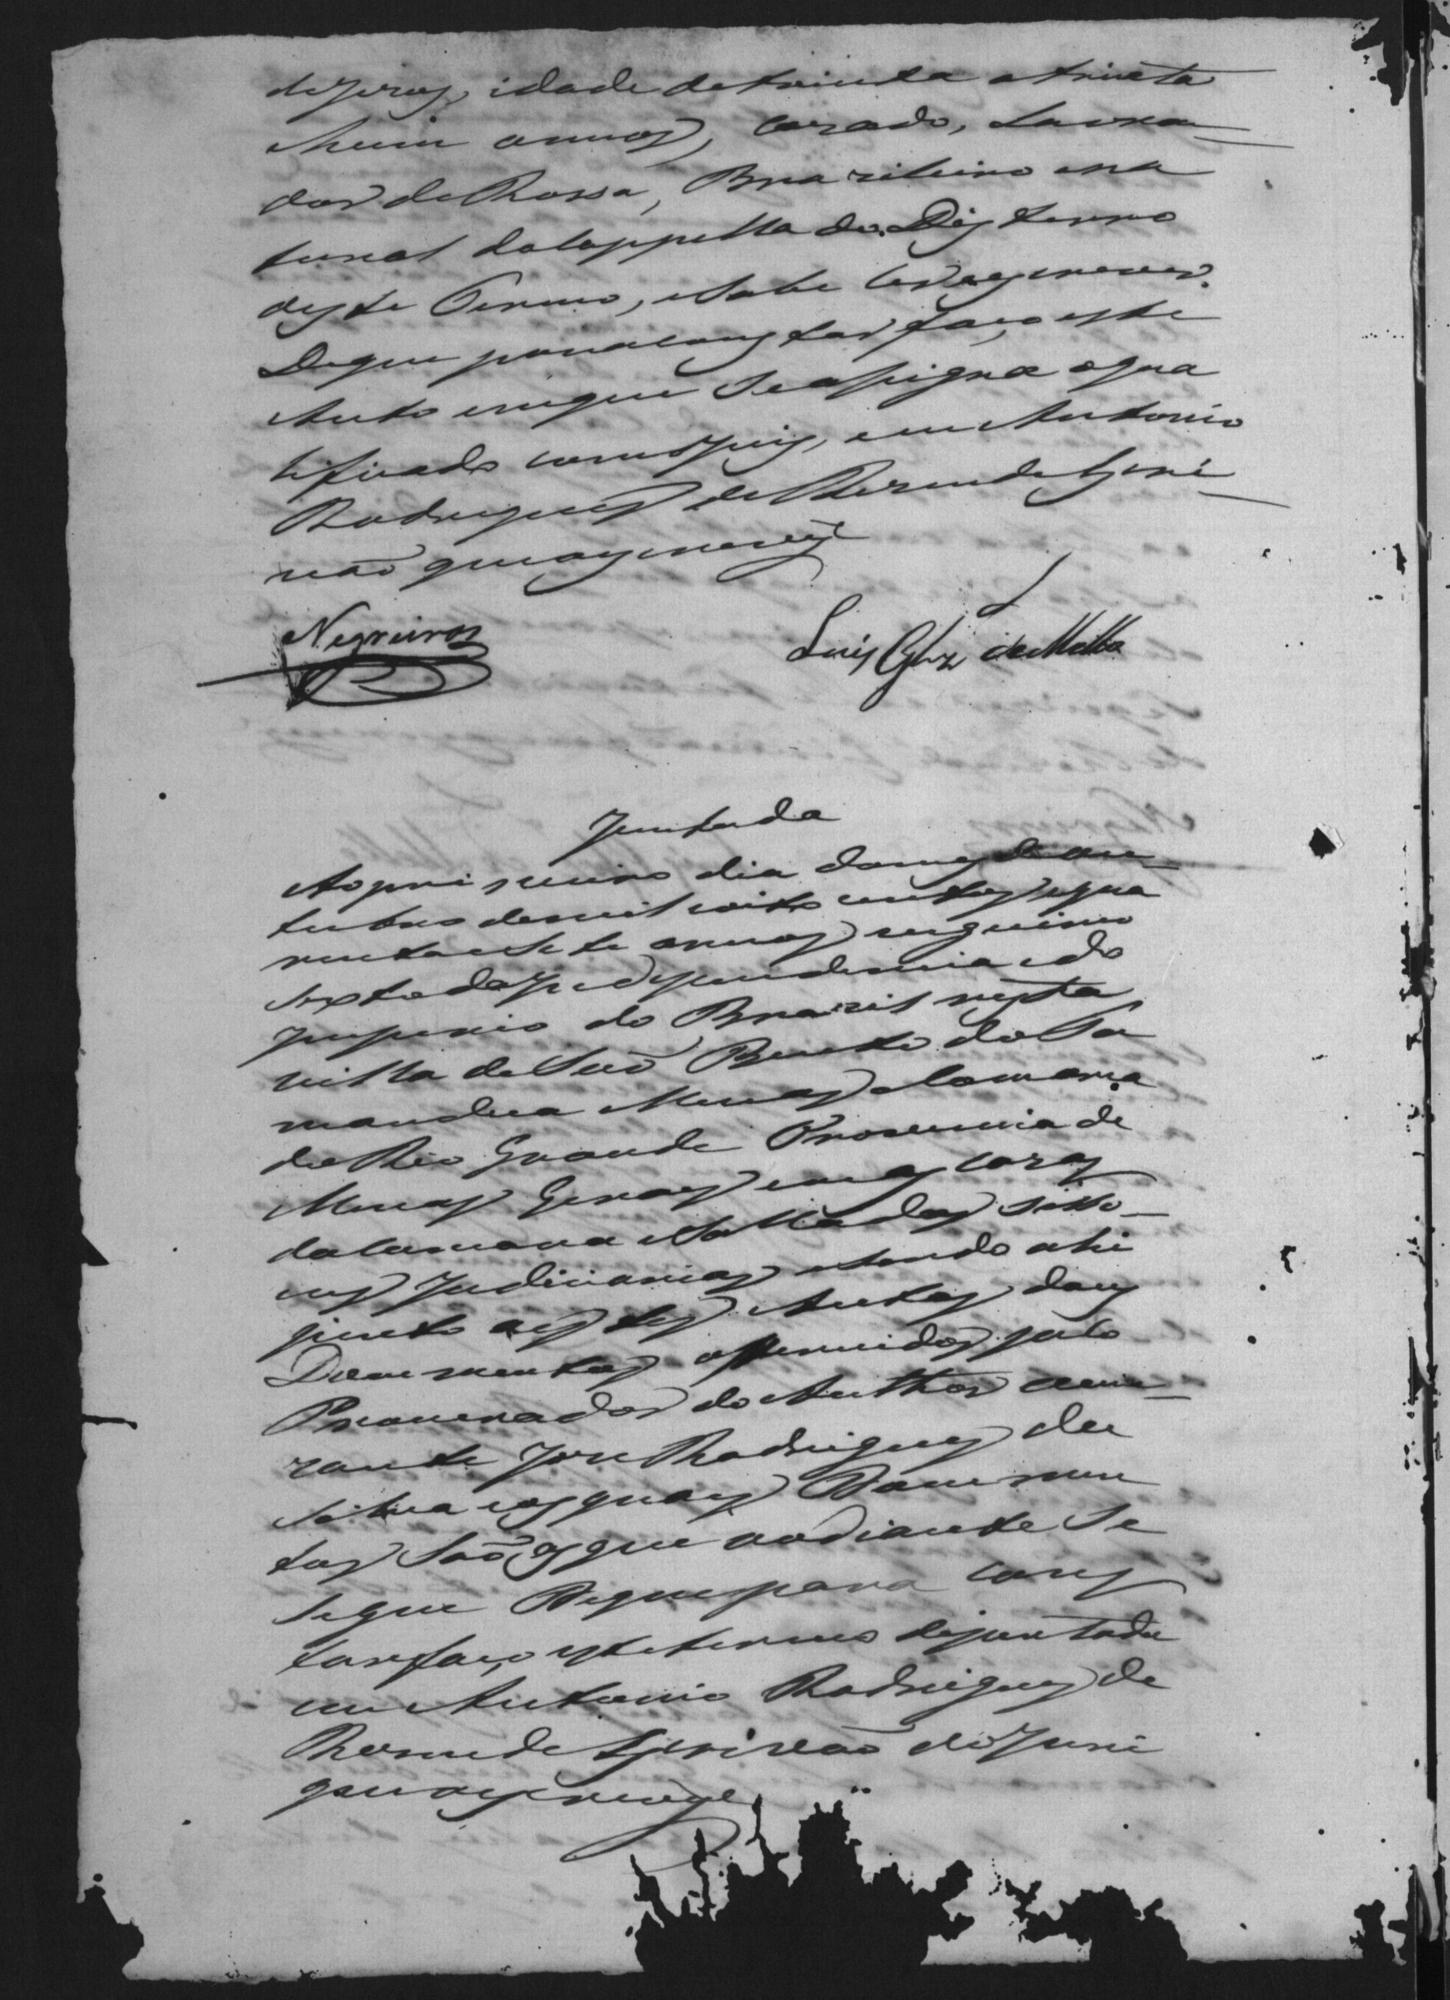 de Jesus, idade de trinta e trinta
e hum annos, cazado, Lavra-
dor de Rossa, Brazileiro e na
tural da Cappella do Desterro
deste Termo, e sabe ler e escrever.
De que para constar faço este
Auto em que se assigna o qua
lificado com o Juiz, e eu Antonio
Rodrigues de Rezende Escri-
vão que o escrevy
Negreiros
Luis de Mello
Juntada
Ao primeiro dia do mez de Ou-
tubro de mil oito centos e qua
renta e sete annos vigecimo
sexto da Independencia e do
Imperio do Brazil nesta
villa de São Bento do Ta
mandua Minas e Comarca
do Rio Grande Provincia de
Minas Geraes em as Cazas
da Camara e Salla das Sisso-
ens Judiciarias e sendo ahi
junto a estes Autos dous
Documentos offerecidos pelo
Procurador do Author
Joze Rodrigues da
Silva os quaes Documen
tos são os que ao diante se
segue De que para cons
tar faço este termo de juntada
eu Antonio Rodrigues de
Rezende Escrivão do Juri
que o escrevy